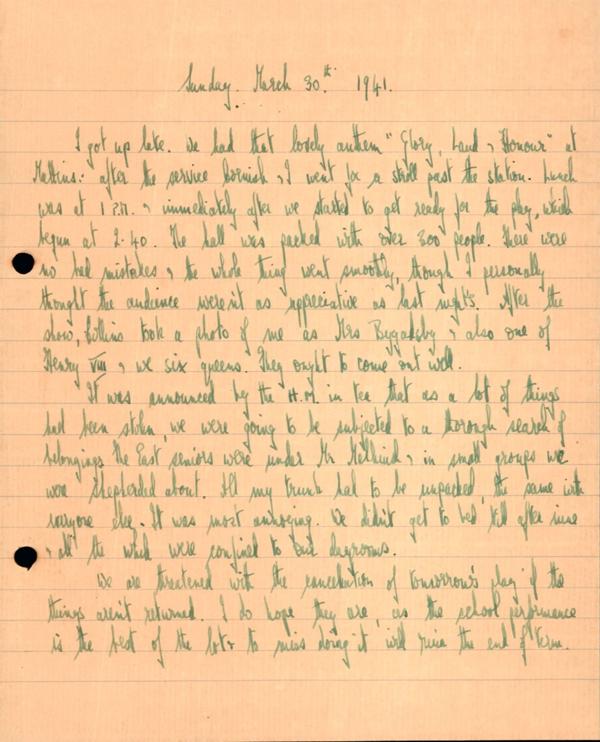 Sunday. March 30th. 1941.
I got up late. We had that lovely anthem "Glory, Laud & Honour" at
Mattins. After the service Cornish & I went for a stroll past the station. Lunch
was at 1 P.M. & immediately after we started to get ready for the play, which
began at 2.40. The hall was packed with over 300 people. There were
no bad mistakes & the whole thing went smoothly, though I personally
thought the audience weren't as appreciative as last night's. After the
show, Collins took a photo of me as Mrs & also one of
Henry VIII & we six queens. They ought to come out well.
It was announced by the H.M. in tea that as a lot of things
had been stolen, we were going to be subjected to a thorough search of
belongings. The East seniors were under Mr & in small groups we
were shepherded about. All my trunk had to be unpacked, the same with
everyone else. It was most annoying. We didn't get to bed till after nine
& all the while were confined to our dayrooms.
We are threatened with the cancellation of tomorrow's play if the
things aren't returned. I do hope they are, as the school performance
is the best of the lot & to miss doing it will ruin the end of term.